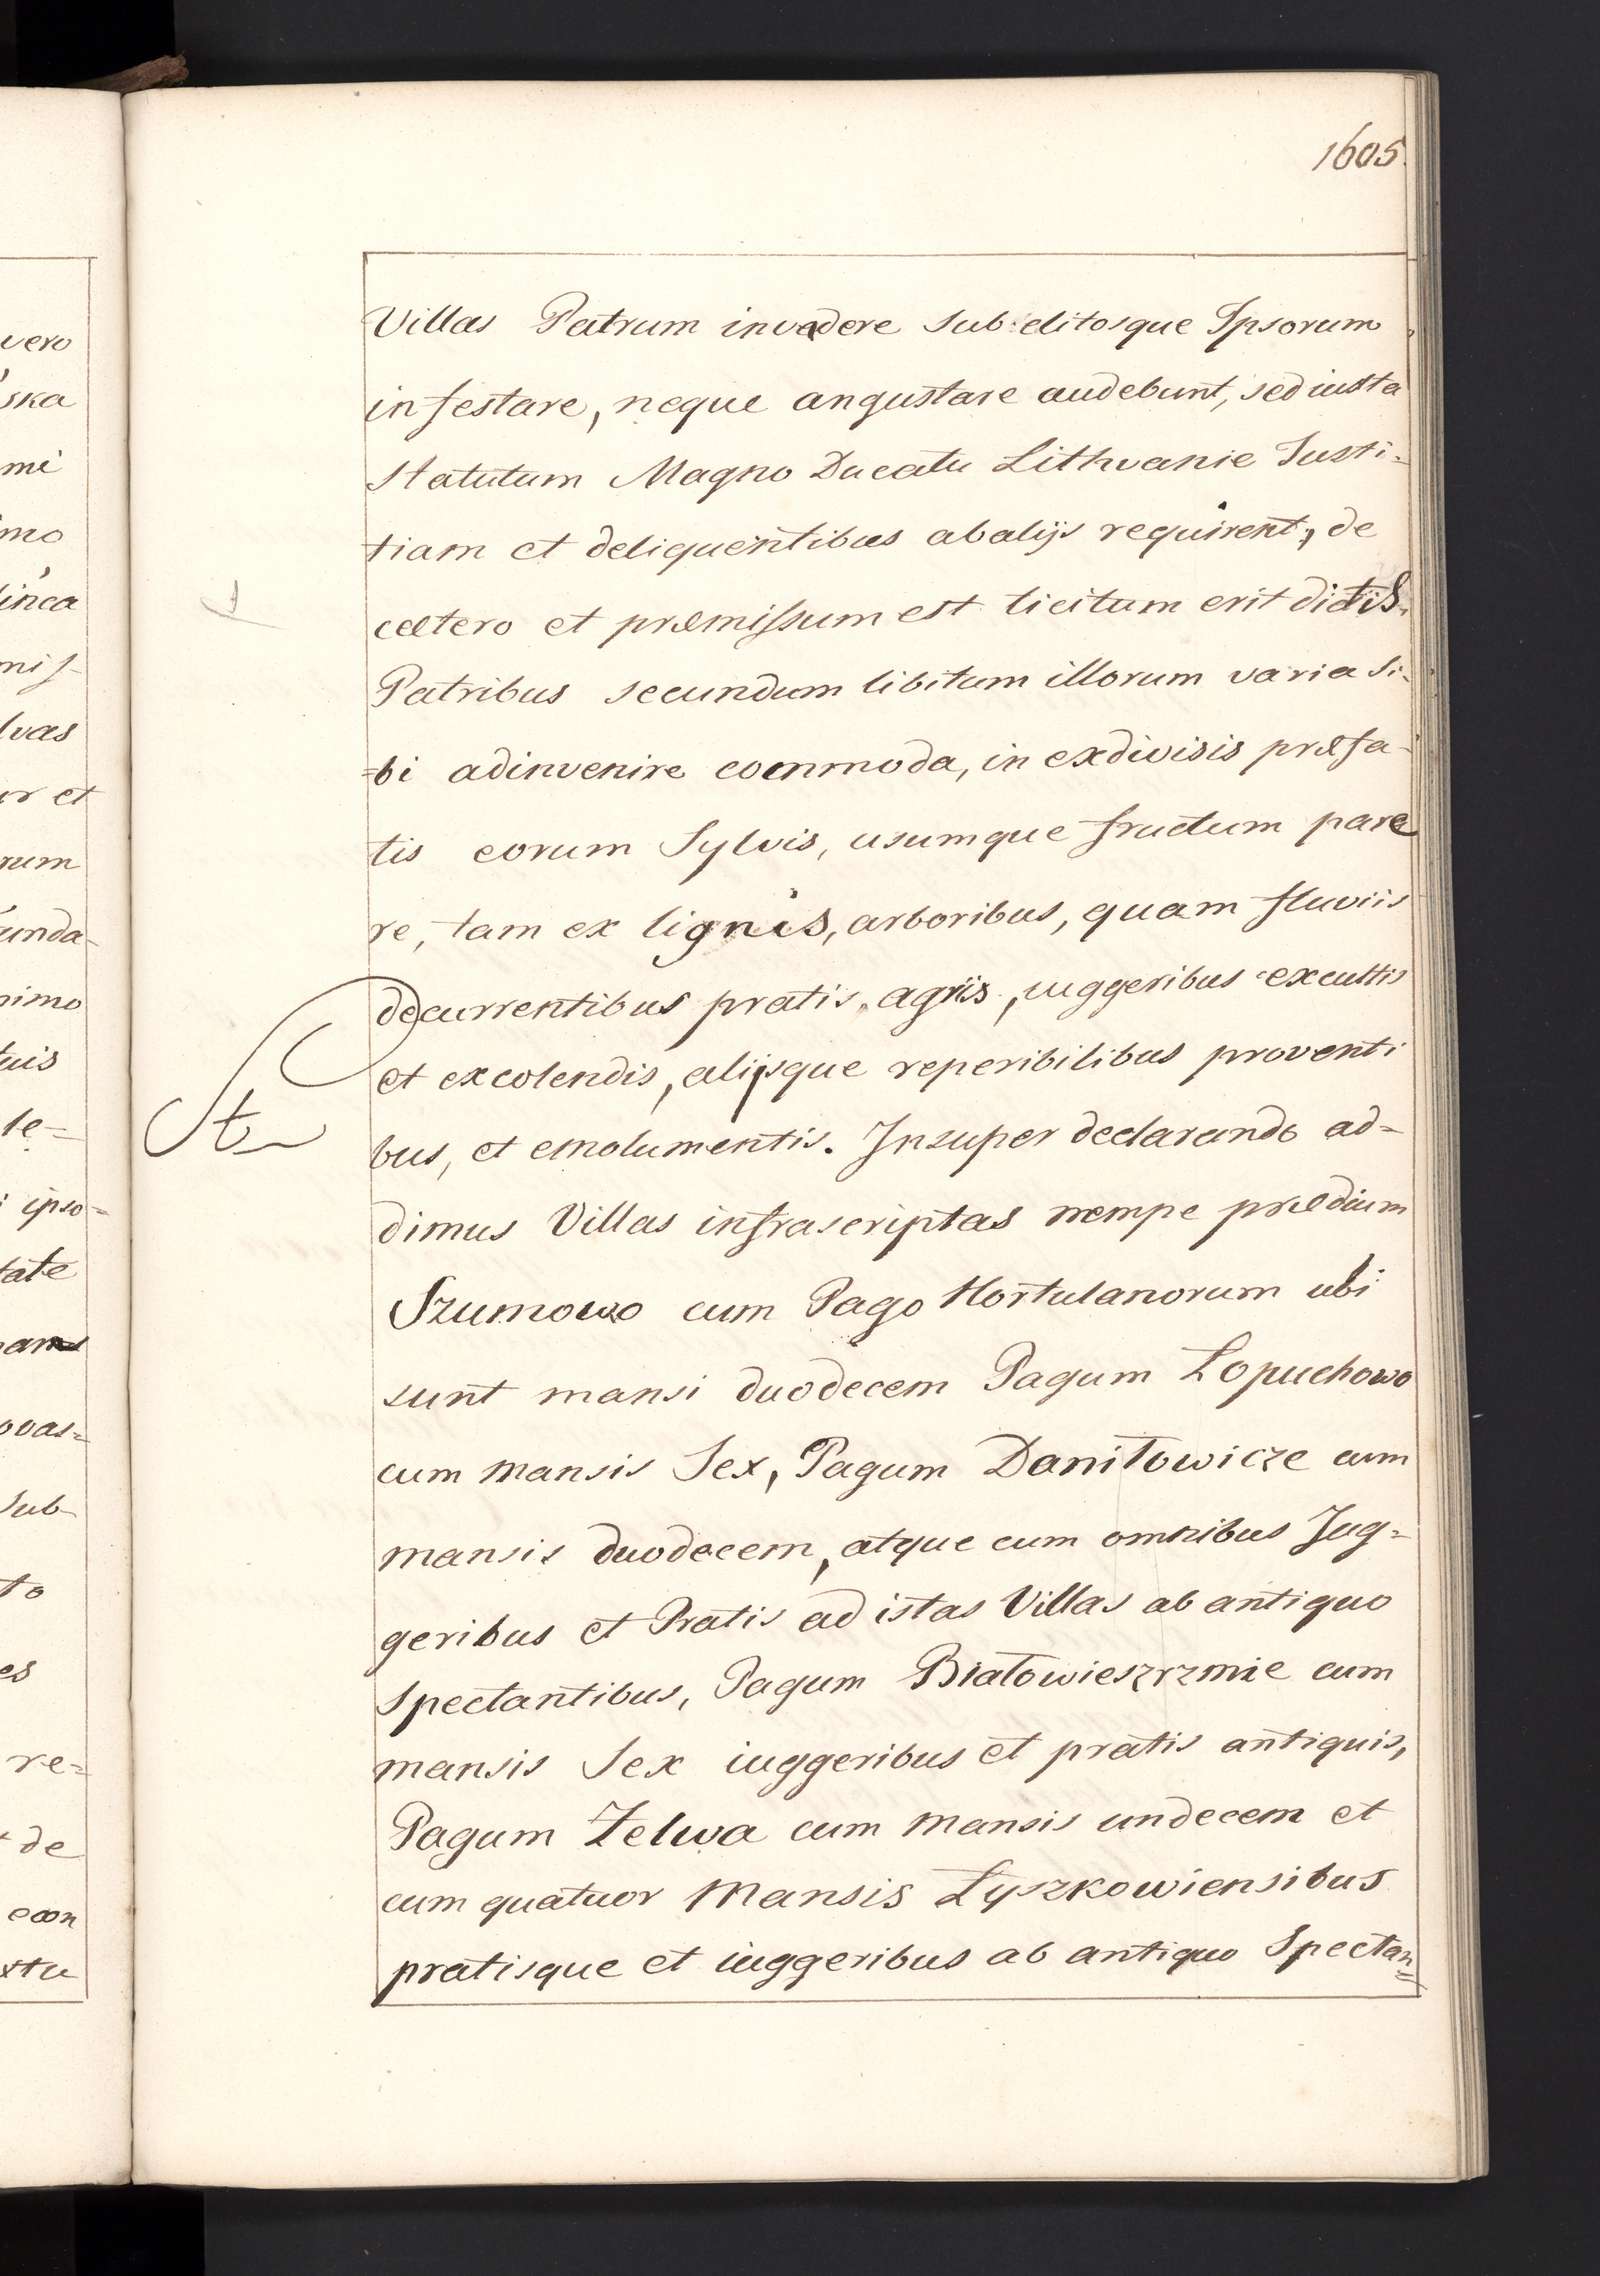 1605.
Villas Patrum invadere Subditosque Ipsorum
infestare, neque angustare audebunt, sed iuxta
Statutum Magno Ducatu Lithvanie Justi-
tiam et deliquentibus ab alijs requirent, de
cætero et præmissum est licitum erit dictis
Patribus secundum libitum illorum varia si-
=bi adinvenire commoda, in exdivisis præfa-
tis eorum Sylvis, usumque fructum pare
re, tam ex lignis, arboribus, quam fluviis
decurrentibus pratis, agriis, iuggeribus excultis
et excolendis, alijsque reperibilibus proventi
bus, et emolumentis. Insuper declarando ad=
dimus Villas infrascriptas nempe prædium
Szumowo cum Pago Hortulanorum ubi
sunt mansi duodecem Pagum Łopuchowo
cum mansis Sex, Pagum Daniłowicze cum
mansis duodecem, atque cum omnibus Jug=
geribus et Pratis ad istas Villas ab antiquo
Spectantibus, Pagum Białowieszrzmie cum
mansis Sex iuggeribus et pratis antiquis,
Pagum Zelwa cum mansis undecem et
cum quatuor Mansis Łyszkowiensibus
pratisque et iuggeribus ab antiquo Spectan=
vero
ska
mi
imo
linca
mis-
lvas
or et
rum
unda-
nimo
tuis
le=
i ipso=
tate
ovas=
Sub-
to
es
re=
de
con
xtu